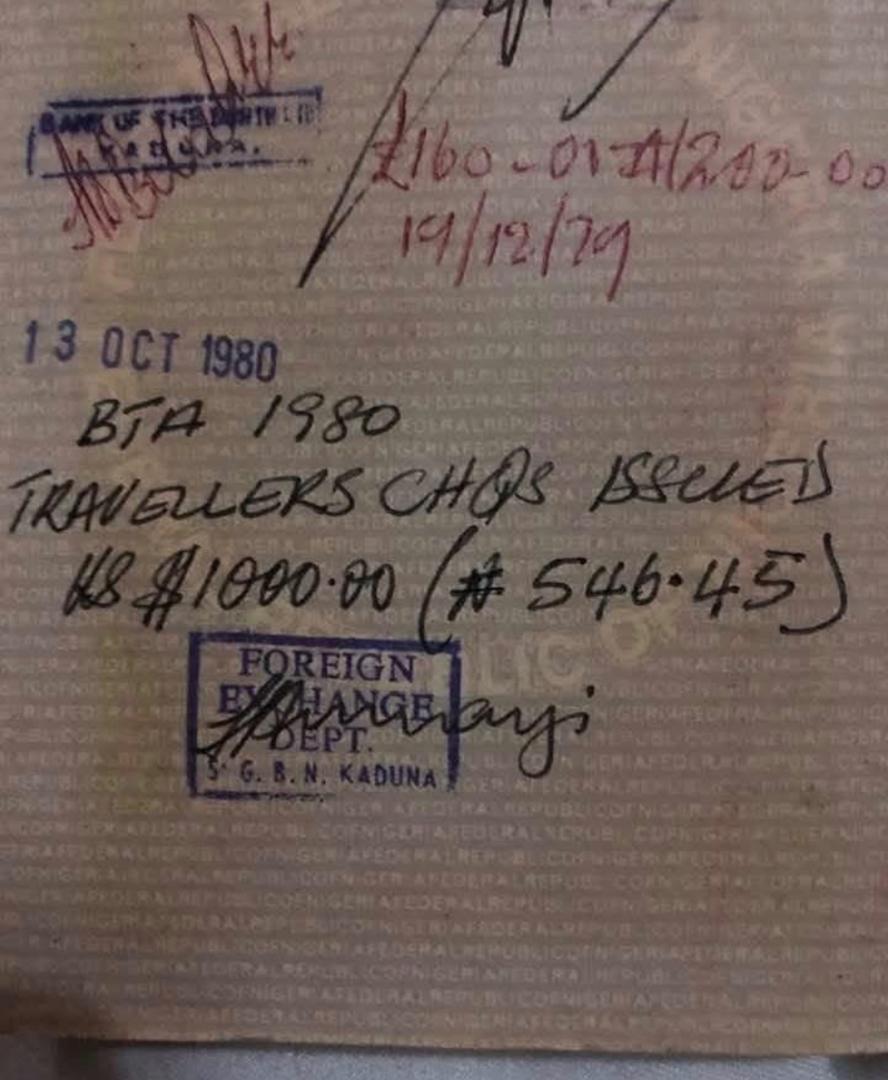 BANK OF THE NORTH LTD
KADUNA.
£160-01 ₦200-00
19/12/79
13 OCT 1980
BTA 1980
TRAVELLERS CHQS ISSUED
US $1000.00 (₦ 546.45)
FOREIGN
EXCHANGE
DEPT.
S. G. B. N. KADUNA